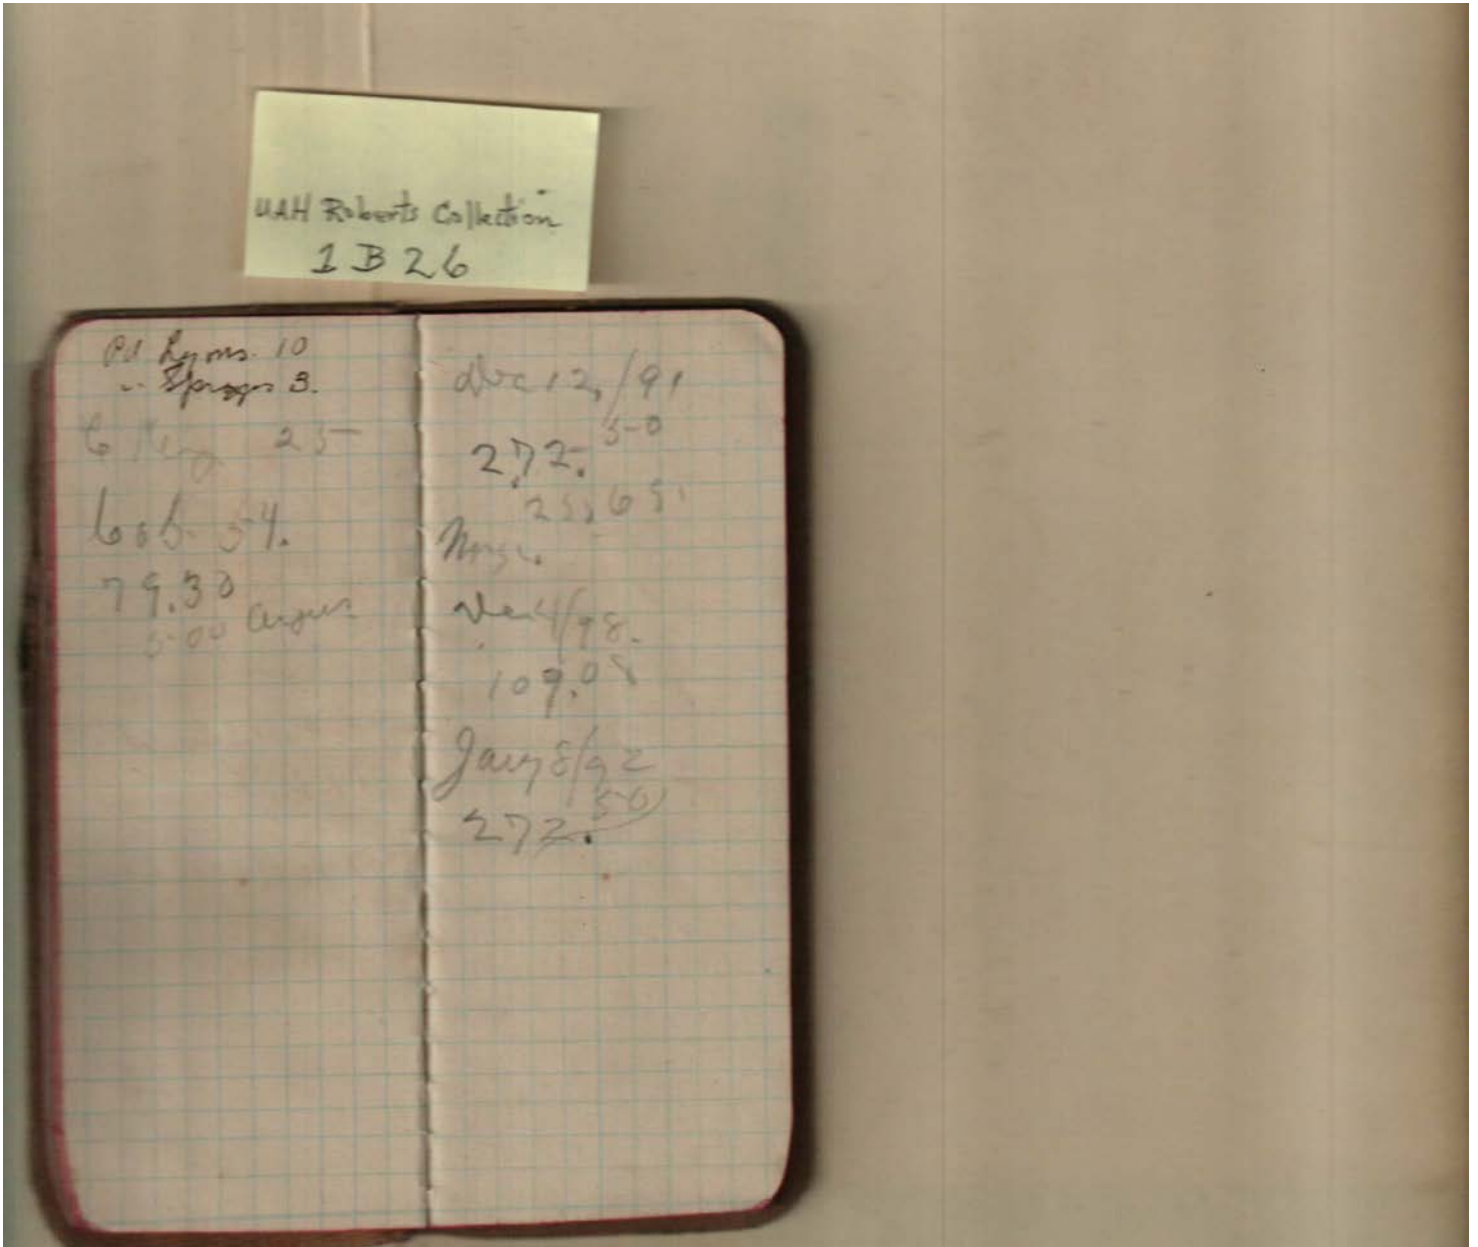 UAH Roberts Collection
1 B 26
Pd Lyons. 10
" Spraggs 3.
25
54.
79.30
5.00
Dec 12, /91
272.50
25,65
Dec 4/98.
109.08
Jany 8/92
272.50